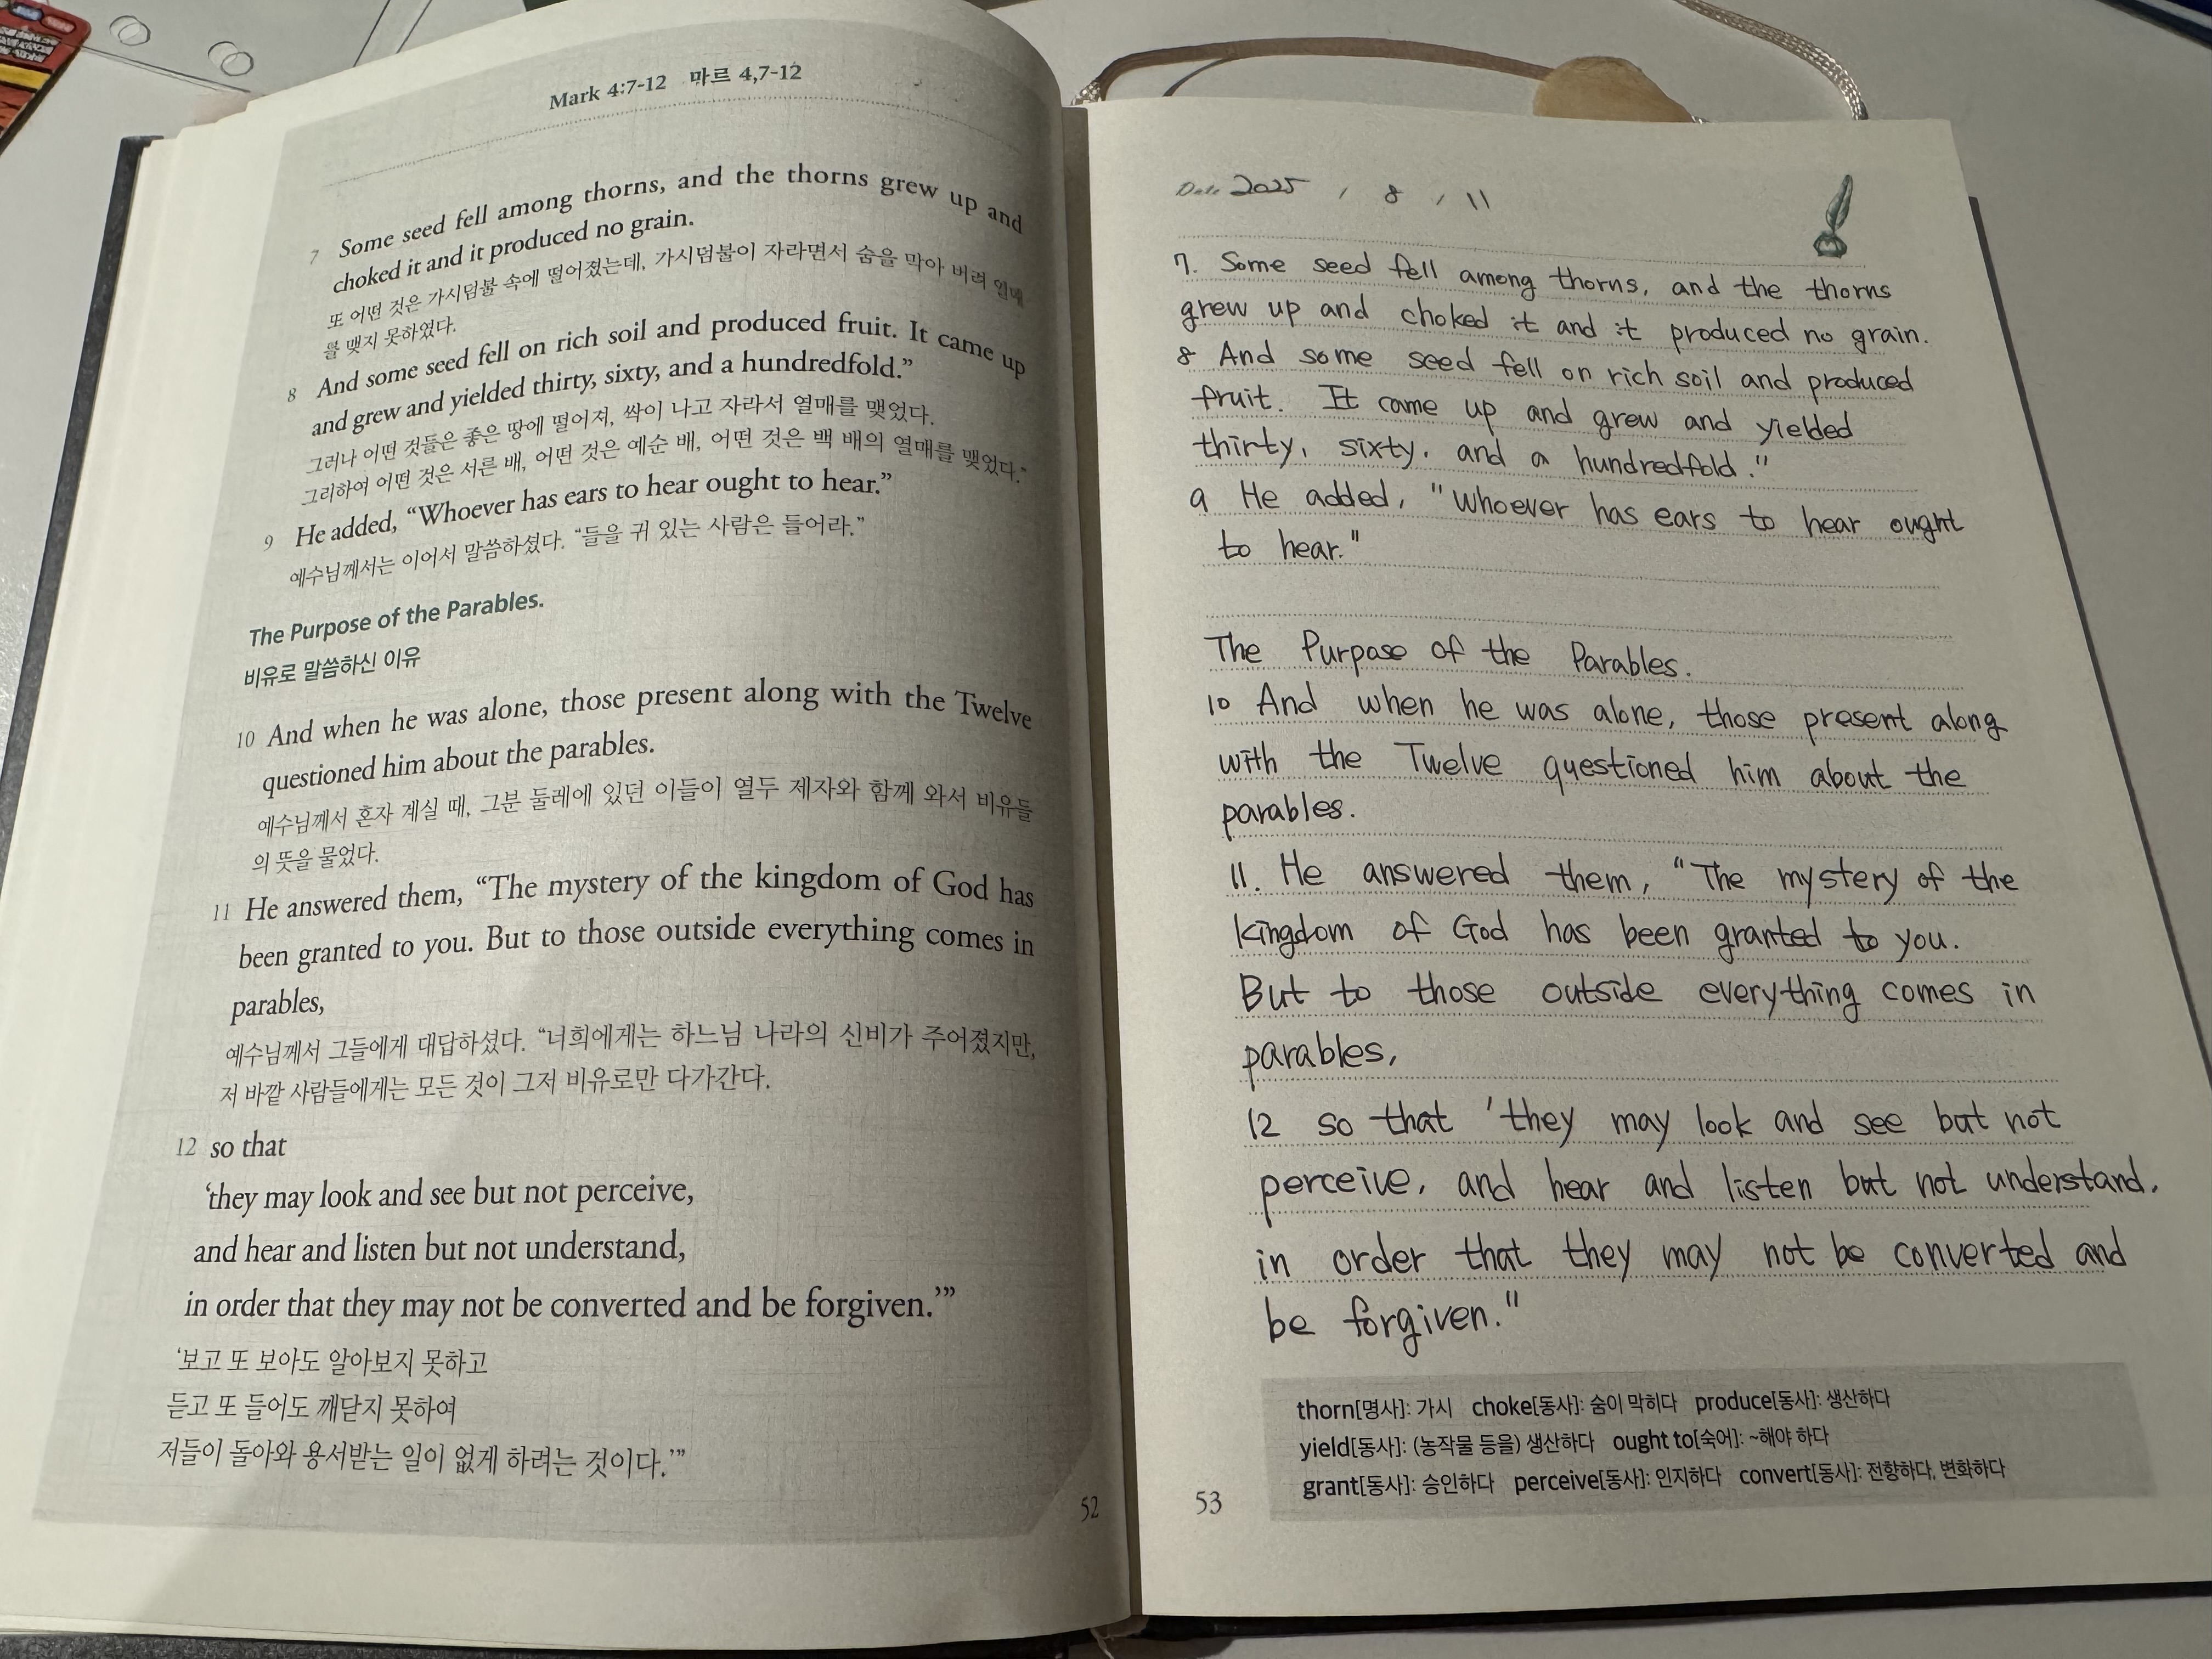 Mark 4:7-12 마르 4,7-12
7 Some seed fell among thorns, and the thorns grew up and
choked it and it produced no grain.
또 어떤 것은 가시덤불 속에 떨어졌는데, 가시덤불이 자라면서 숨을 막아 버려 열매
를 맺지 못하였다.
8 And some seed fell on rich soil and produced fruit. It came up
and grew and yielded thirty, sixty, and a hundredfold.”
그러나 어떤 것들은 좋은 땅에 떨어져, 싹이 나고 자라서 열매를 맺었다.
그리하여 어떤 것은 서른 배, 어떤 것은 예순 배, 어떤 것은 백 배의 열매를 맺었다.”
9 He added, “Whoever has ears to hear ought to hear.”
예수님께서는 이어서 말씀하셨다. “들을 귀 있는 사람은 들어라.”
The Purpose of the Parables.
비유로 말씀하신 이유
10 And when he was alone, those present along with the Twelve
questioned him about the parables.
예수님께서 혼자 계실 때, 그분 둘레에 있던 이들이 열두 제자와 함께 와서 비유들
의 뜻을 물었다.
11 He answered them, “The mystery of the kingdom of God has
been granted to you. But to those outside everything comes in
parables,
예수님께서 그들에게 대답하셨다. “너희에게는 하느님 나라의 신비가 주어졌지만,
저 바깥 사람들에게는 모든 것이 그저 비유로만 다가간다.
12 so that
‘they may look and see but not perceive,
and hear and listen but not understand,
in order that they may not be converted and be forgiven.’”
‘보고 또 보아도 알아보지 못하고
듣고 또 들어도 깨닫지 못하여
저들이 돌아와 용서받는 일이 없게 하려는 것이다.’”
52
Date 2025 / 8 / 11
7. Some seed fell among thorns, and the thorns
grew up and choked it and it produced no grain.
8 And some seed fell on rich soil and produced
fruit. It came up and grew and yielded
thirty, sixty, and a hundredfold."
9 He added, "Whoever has ears to hear ought
to hear."
The Purpose of the Parables.
10 And when he was alone, those present along
with the Twelve questioned him about the
parables.
11. He answered them, "The mystery of the
kingdom of God has been granted to you.
But to those outside everything comes in
parables,
12 so that 'they may look and see but not
perceive, and hear and listen but not understand,
in order that they may not be converted and
be forgiven."
thorn[명사]: 가시 choke[동사]: 숨이 막히다 produce[동사]: 생산하다
yield[동사]: (농작물 등을) 생산하다 ought to[숙어]: ~해야 하다
grant[동사]: 승인하다 perceive[동사]: 인지하다 convert[동사]: 전향하다, 변화하다
53